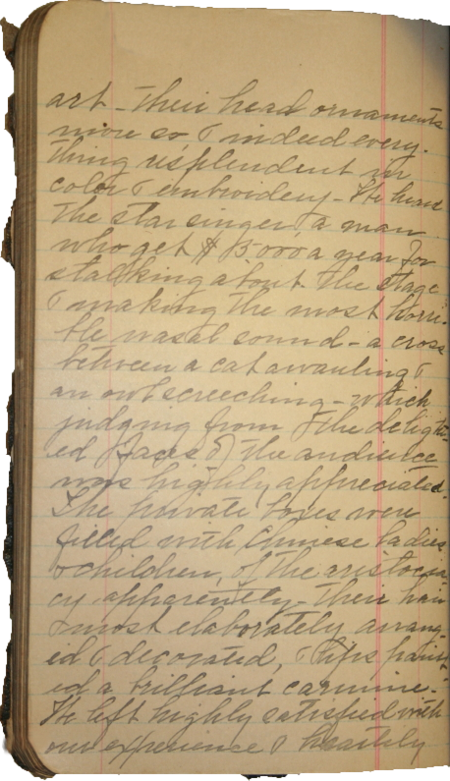 art – their head ornaments
more so, & indeed every-
thing resplendent in
color & embroidery – We heard
the star singer, a man
who get $ 15000 a year for
stalking about the stage
& making the most horri-
ble nasal sound – a cross
between a cat awauling &
an owl screeching – which
judging from the delight-
ed faces of the audience
was highly appreciated.
The private boxes were
filled with Chinese ladies
& children, of the aristocra-
cy apparently – their hair
most elaborately arang-
ed & decorated, & lips paint-
ed a brilliant carmine.
We left highly satisfied with
our experience & heartily